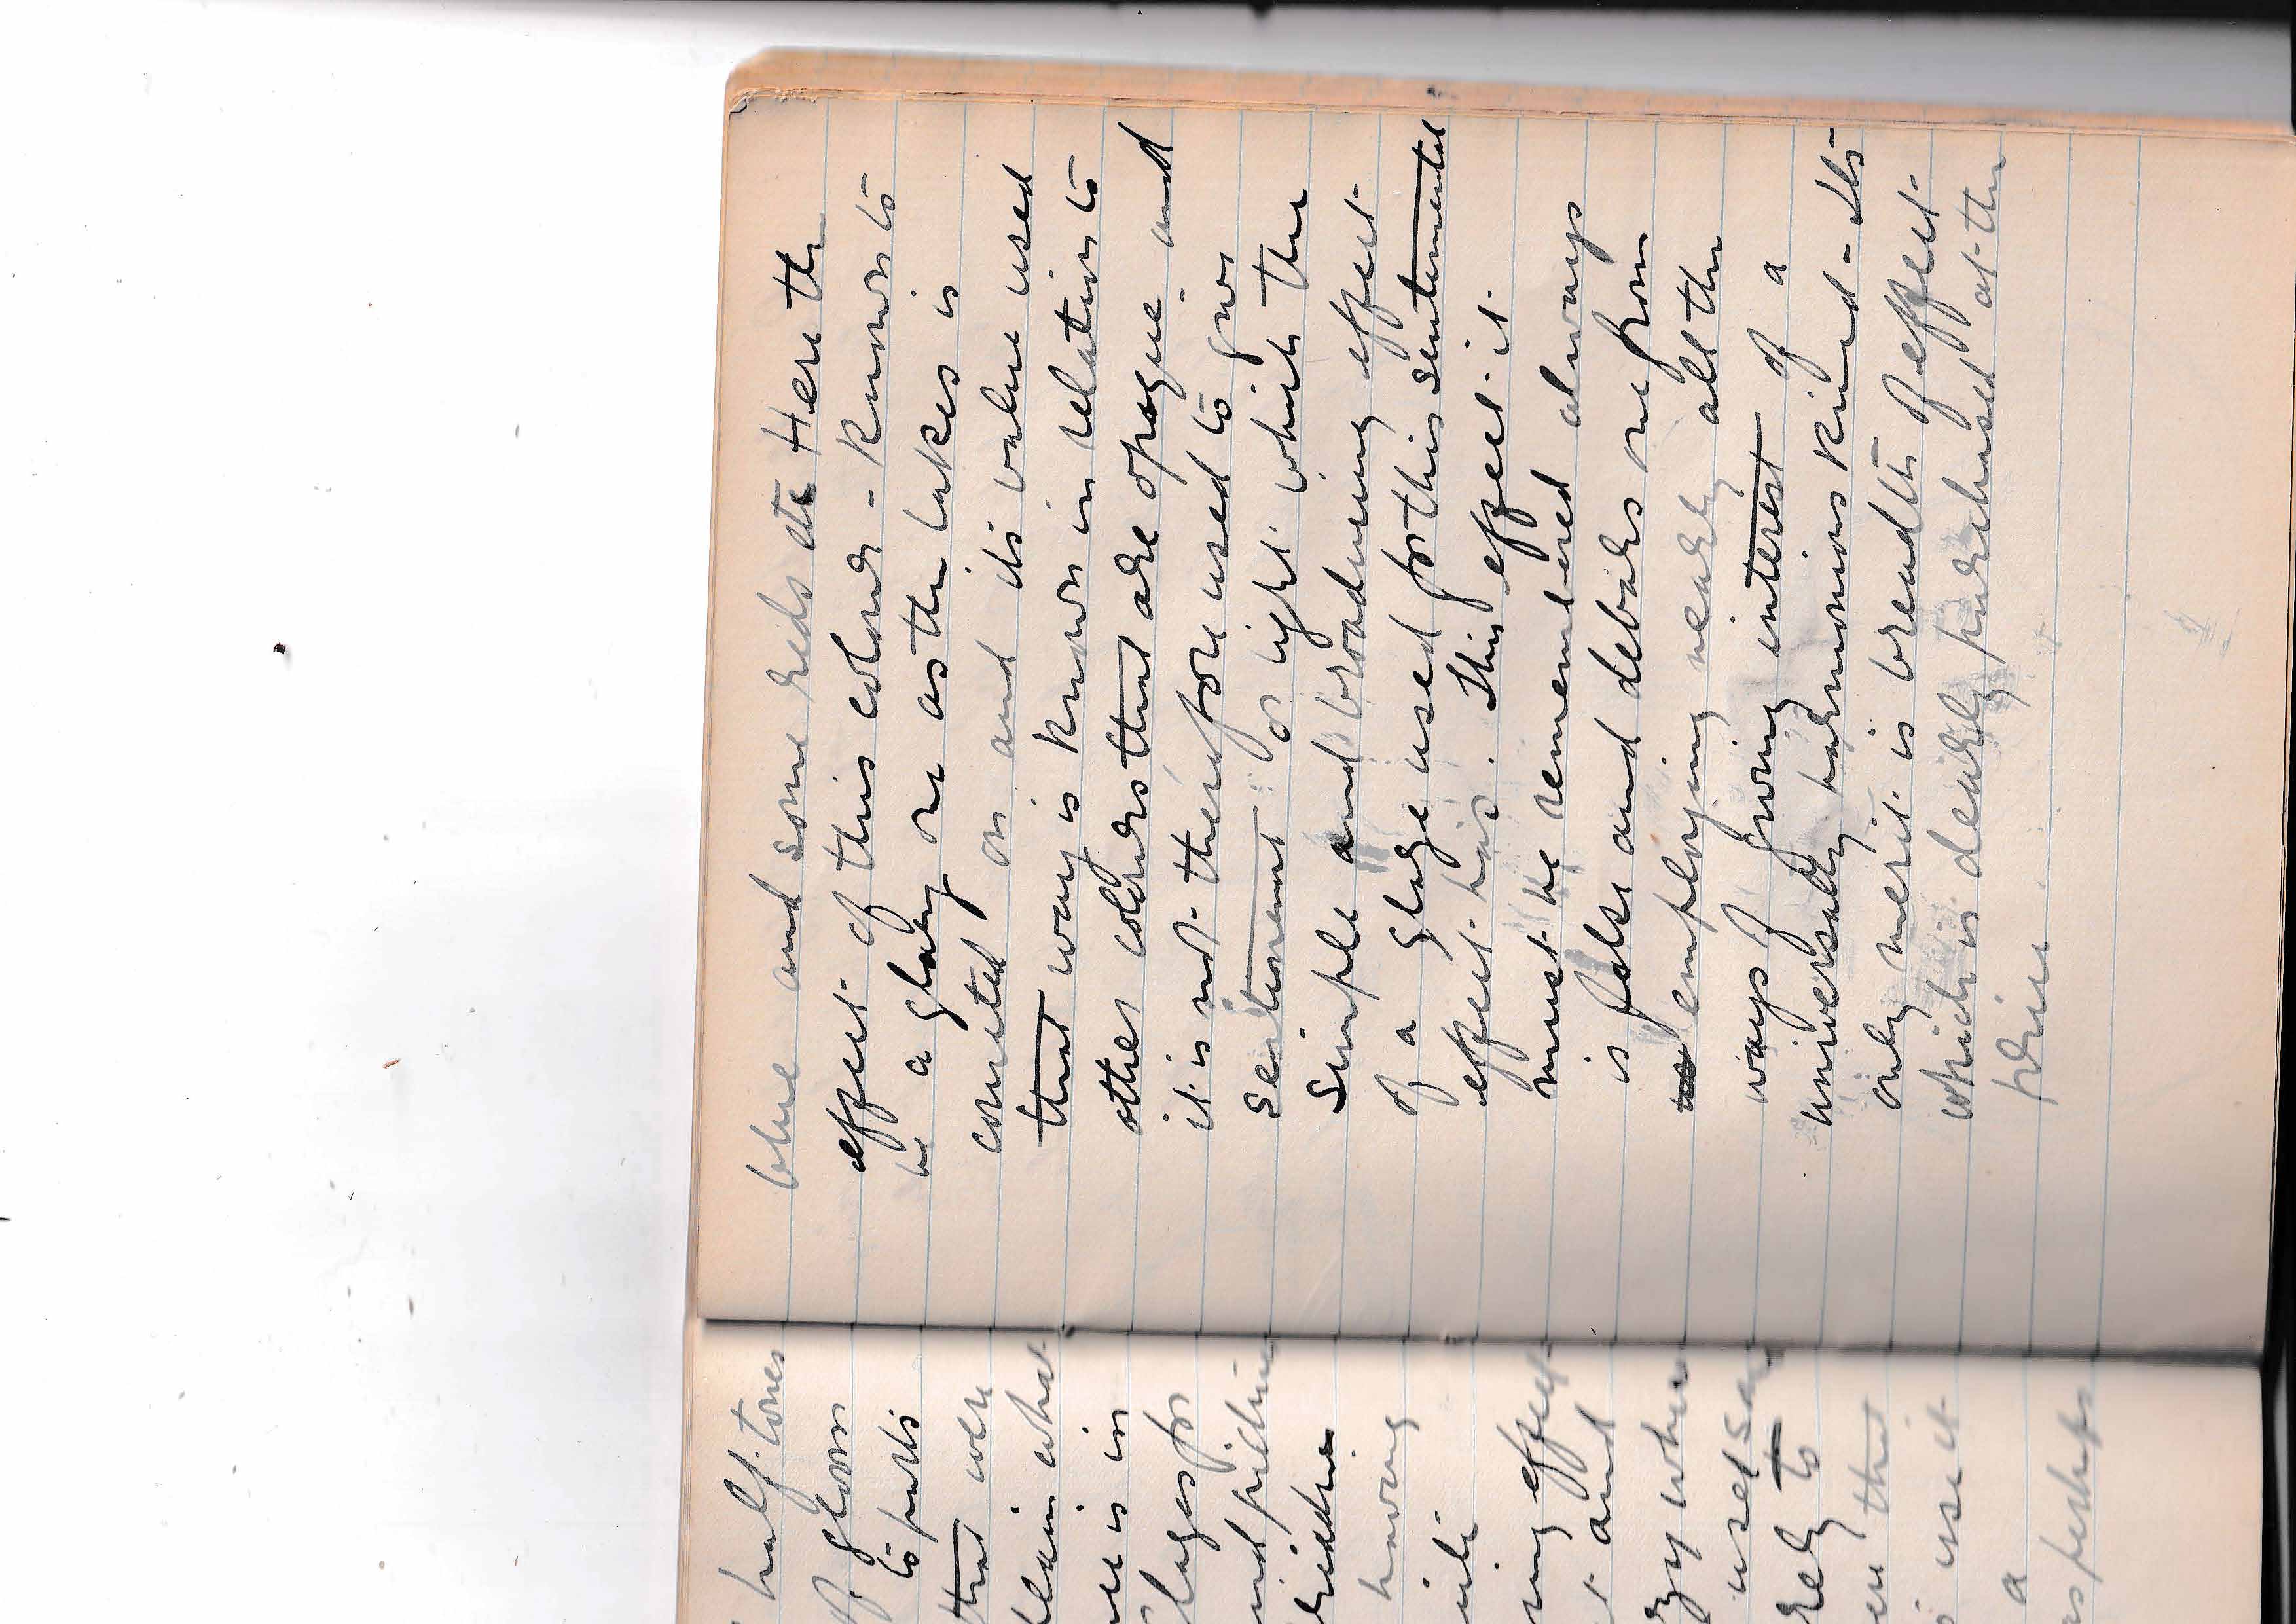 blue and some reds etc Here the
effect of this colour - known to
be a glazy one as the lakes is
counted on and its value used
that way is known in relation to
other colours that are opaque - and
it is not therefore used to give
sentiment or light which the
simple and broadening effect
of a glaze used for this sentimental
effect has. This effect it
must be remembered always
is false and debars one from
employing nearly all the
ways of giving interest of a
universally harmonious kind - Its
only merit is breadth of effect
which is dearly purchased at the
price
half-tones
of gloom
to puts
that were
what
is in
glazes for
and
having
effect
and
when
used
to
that
use it
a
as perhaps